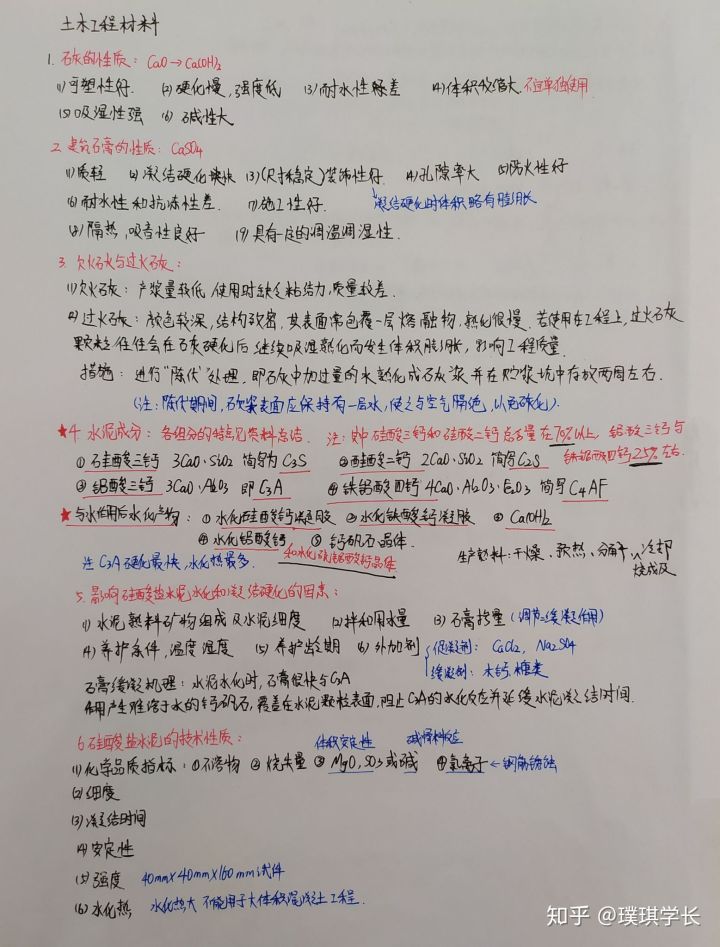 土木工程材料
1. 石灰的性质：CaO→Ca(OH)₂
(1)可塑性好. (2)硬化慢，强度低 (3)耐水性差 (4)体积收缩大.不宜单独使用
(5)吸湿性强 (6)碱性大
2. 建筑石膏的性质：CaSO₄
(1)质轻 (2)凝结硬化快 (3)(尺寸稳定)装饰性好. (4)孔隙率大 (5)防火性好
(6)耐水性和抗冻性差. (7)施工性好. 凝结硬化时体积略有膨胀
(8)隔热，吸音性良好 (9)具有一定的调温调湿性.
3. 欠火石灰与过火石灰：
(1)欠火石灰：产浆量较低,使用时缺乏粘结力,质量较差.
(2)过火石灰：颜色较深,结构致密,其表面常包覆一层熔融物,熟化很慢.若使用在工程上,过火石灰
颗粒往往会在石灰硬化后,继续吸湿熟化而发生体积膨胀,影响工程质量.
措施：进行“陈伏”处理，即石灰中加过量的水熟化成石灰浆并在贮浆坑中存放两周左右.
(注：陈伏期间，石灰浆表面应保持有一层水，使之与空气隔绝，以免碳化).
★4. 水泥成分：各组分的特点见资料总结. 注：其中硅酸三钙和硅酸二钙总含量在70%以上，铝酸三钙与
铁铝酸四钙25%左右.
①硅酸三钙 3CaO·SiO₂ 简写为C₃S ②硅酸二钙 2CaO·SiO₂ 简写C₂S
③铝酸三钙 3CaO·Al₂O₃ 即C₃A ④铁铝酸四钙 4CaO·Al₂O₃·Fe₂O₃ 简写C₄AF
★与水作用后水化产物：①水化硅酸钙凝胶 ②水化铁酸钙凝胶 ③Ca(OH)₂
④水化铝酸钙 ⑤钙矾石晶体.
和水化硫铝酸钙晶体
注 C₃A硬化最快，水化热最多. 生产熟料：干燥、预热、分解、冷却
烧成及
5. 影响硅酸盐水泥水化和凝结硬化的因素：
(1)水泥熟料矿物组成及水泥细度 (2)拌和用水量 (3)石膏掺量(调节—缓凝作用)
(4)养护条件，温度湿度 (5)养护龄期 (6)外加剂 促凝剂：CaCl₂，Na₂SO₄
缓凝剂：木钙，糖类
石膏缓凝机理：水泥水化时，石膏很快与C₃A
作用产生难溶于水的钙矾石，覆盖在水泥颗粒表面，阻止C₃A的水化反应并延缓水泥凝结时间.
6.硅酸盐水泥的技术性质： 体积安定性 碱骨料反应
(1)化学品质指标：①不溶物 ②烧失量 ③MgO,SO₃或碱 ④氯离子←钢筋锈蚀
(2)细度
(3)凝结时间
(4)安定性
(5)强度 40mm×40mm×160mm试件
(6)水化热 水化热大 不能用于大体积混凝土工程.
知乎 @璞琪学长